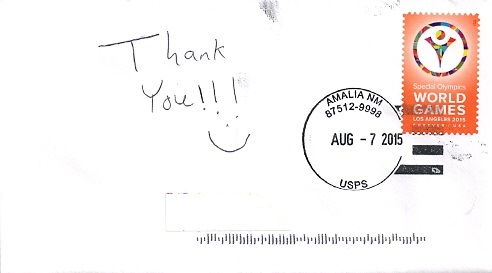 Thank
You!!!
Special Olympics
WORLD
GAMES
LOS ANGELES 2015
FOREVER / USA
AMALIA NM
87512-9998
AUG - 7 2015
USPS